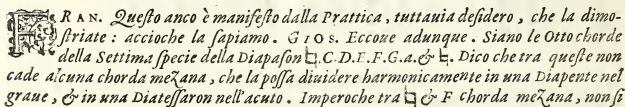 FRAN. Queſto anco è manifeſto dalla Prattica, tuttauia deſidero, che la dimo-
ſtriate: accioche la ſapiamo. GIOS. Eccoue adunque. Siano le Otto chorde
della Settima ſpecie della Diapaſon ♮.C.D.E.F.G.a.& ♮. Dico che tra queſte non
cade alcuna chorda mezana, che la poſſa diuidere harmonicamente in una Diapente nel
graue, & in una Diateſſaron nell'acuto. Imperoche tra ♮ & F chorda mezana, non ſi